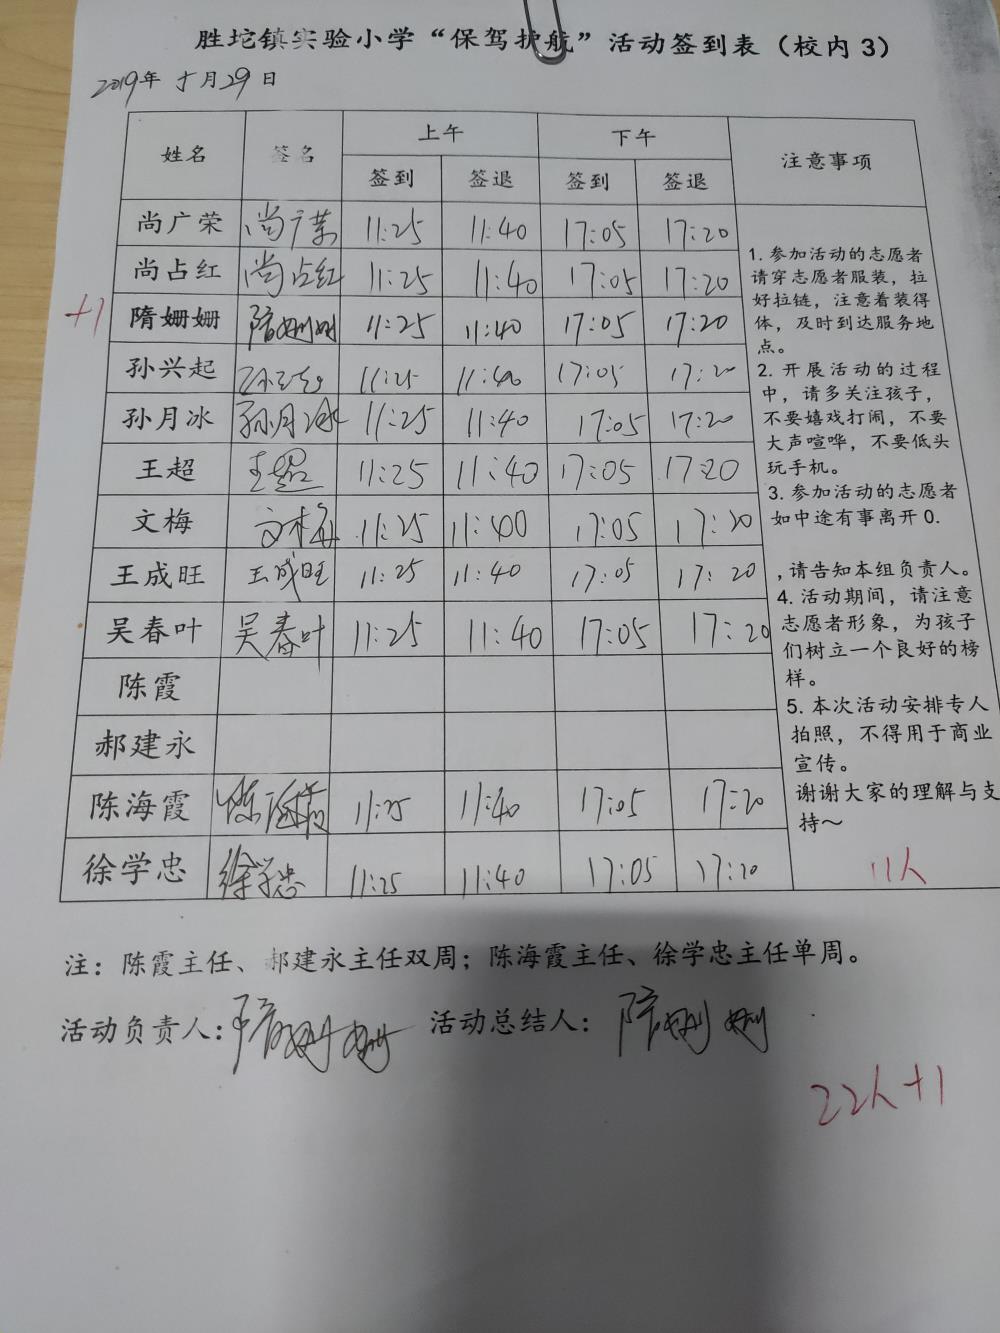 胜坨镇实验小学“保驾护航”活动签到表（校内3）
2019年5月29日
姓名 签名 上午 下午 注意事项
签到 签退 签到 签退
尚广荣 尚广荣 11:25 11:40 17:05 17:20
尚占红 尚占红 11:25 11:40 17:05 17:20
+1 隋姗姗 隋姗姗 11:25 11:40 17:05 17:20
孙兴起 孙兴起 11:25 11:40 17:05 17:20
孙月冰 孙月冰 11:25 11:40 17:05 17:20
王超 王超 11:25 11:40 17:05 17:20
文梅 文梅 11:25 11:40 17:05 17:20
王成旺 王成旺 11:25 11:40 17:05 17:20
吴春叶 吴春叶 11:25 11:40 17:05 17:20
陈霞
郝建永
陈海霞 陈海霞 11:25 11:40 17:05 17:20
徐学忠 徐学忠 11:25 11:40 17:05 17:20
1. 参加活动的志愿者
请穿志愿者服装，拉
好拉链，注意着装得
体，及时到达服务地
点。
2. 开展活动的过程
中，请多关注孩子，
不要嬉戏打闹，不要
大声喧哗，不要低头
玩手机。
3. 参加活动的志愿者
如中途有事离开0.
,请告知本组负责人。
4. 活动期间，请注意
志愿者形象，为孩子
们树立一个良好的榜
样。
5. 本次活动安排专人
拍照，不得用于商业
宣传。
谢谢大家的理解与支
持～
11人
注：陈霞主任、郝建永主任双周；陈海霞主任、徐学忠主任单周。
活动负责人：隋姗姗 活动总结人：隋姗姗
22人+1